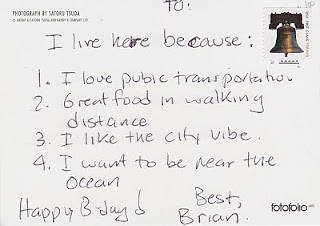 PHOTOGRAPH BY SATORU TSUDA
TO:
I live here because:
1. I love pubic transportation
2. Great food in walking
distance
3. I like the city vibe.
4. I want to be near the
ocean
Happy B-day!
Best,
Brian.
fotofolio